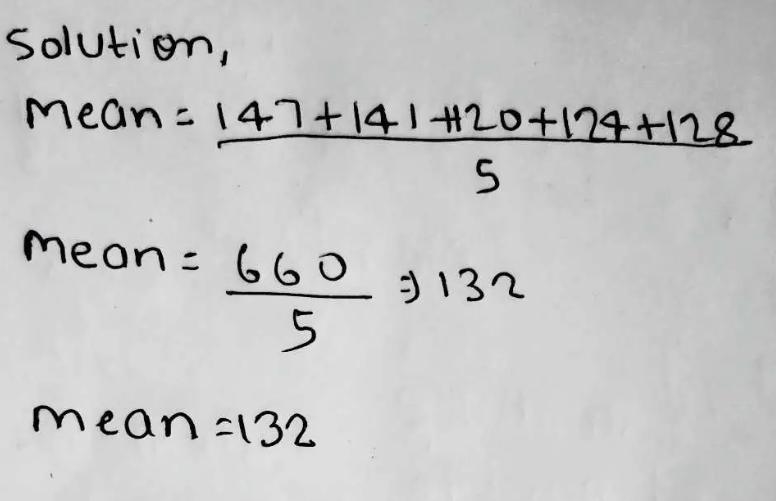 Solution,
Mean = 147+141+120+124+128
5
Mean = 660 ⇒ 132
5
mean =132